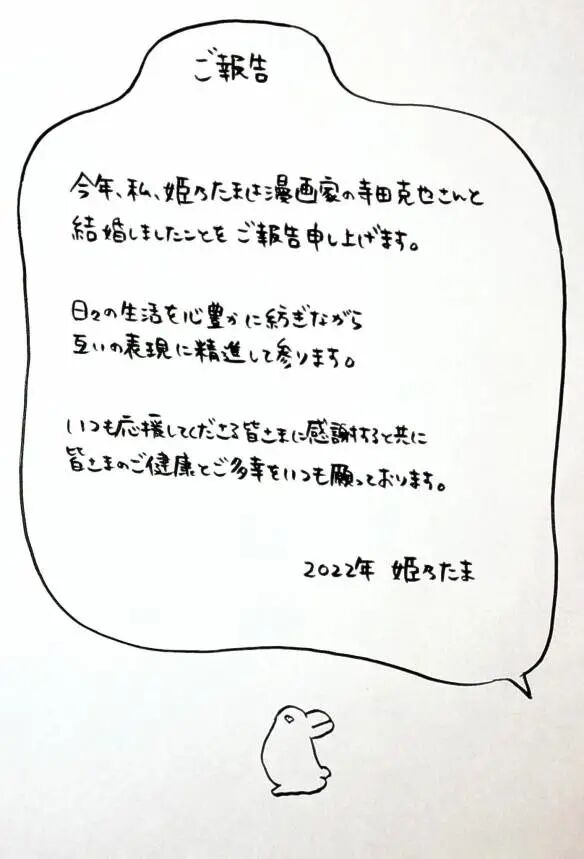 ご報告
今年、私、姫乃たまは漫画家の寺田克也さんと
結婚しましたことを ご報告申し上げます。
日々の生活を心豊かに紡ぎながら
互いの表現に精進して参ります。
いつも応援してくださる皆さまに感謝すると共に
皆さまのご健康とご多幸をいつも願っております。
2022年 姫乃たま